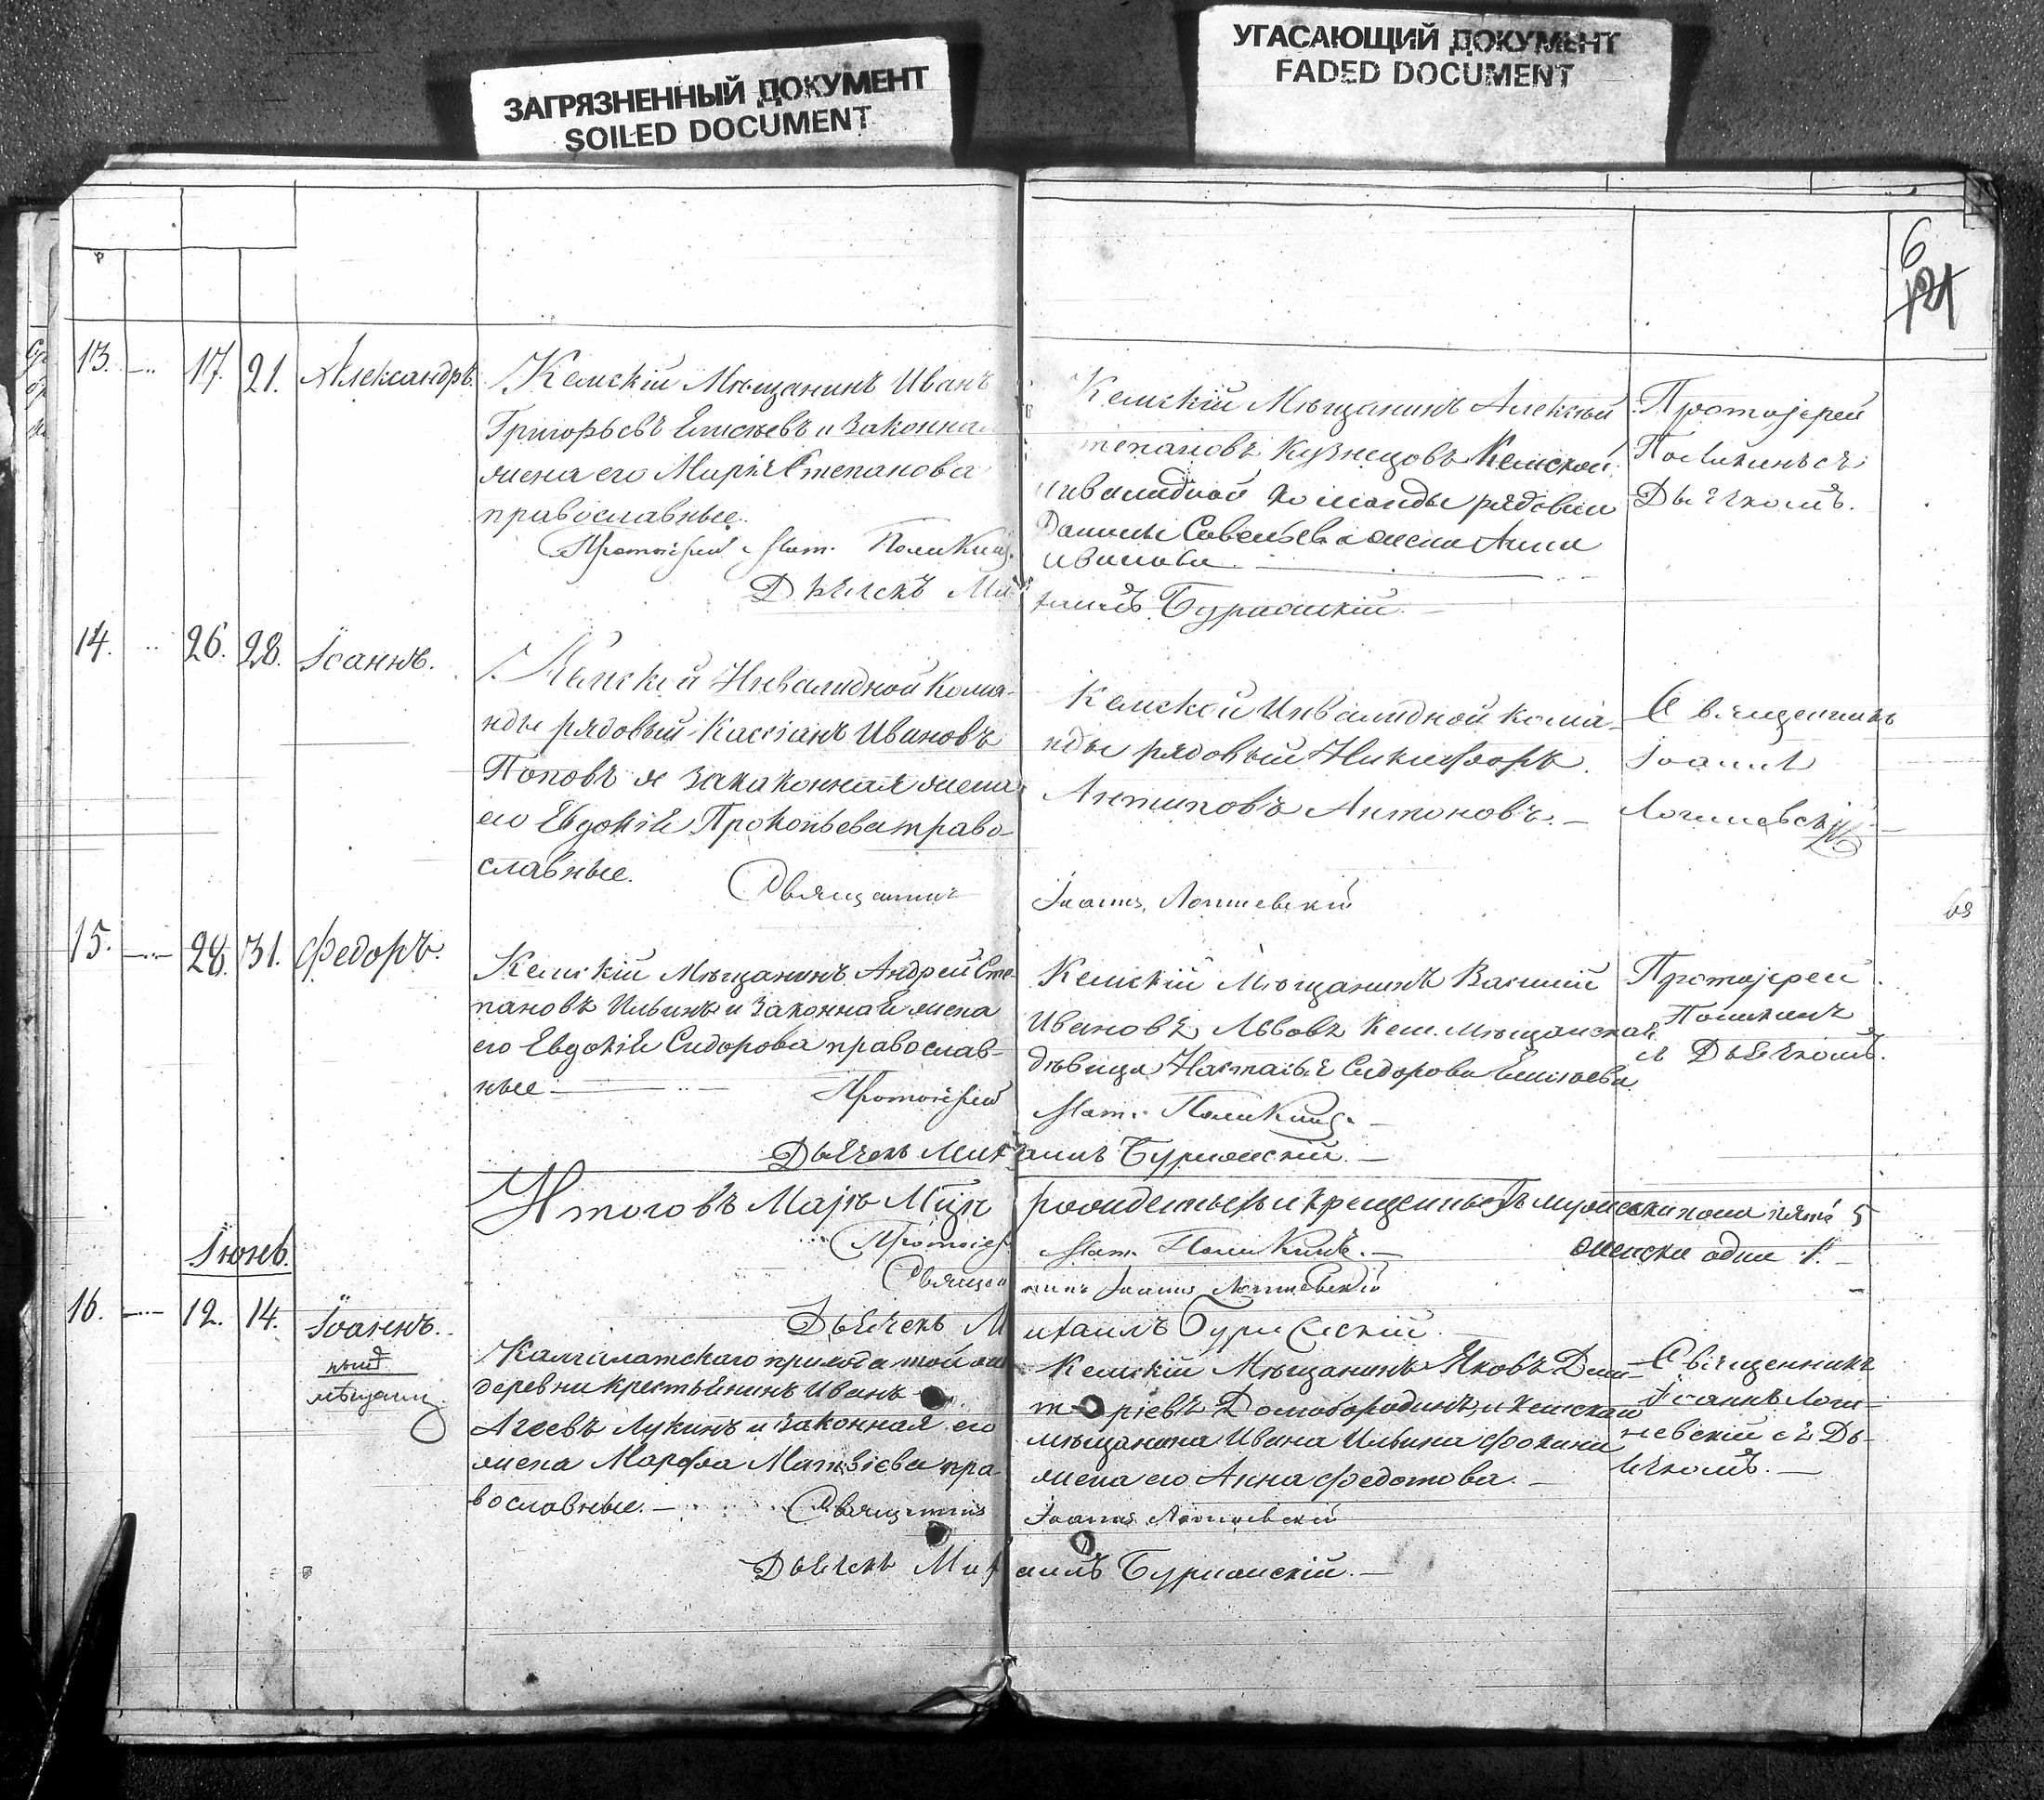 ЗАГРЯЗНЕННЫЙ ДОКУМЕНТ
SOILED DOCUMENT
УГАСАЮЩИЙ ДОКУМЕНТ
FADED DOCUMENT
6
121
13. 17. 21. Александръ.
Кемскій Мѣщанинъ Иванъ
Григорьевъ Елисѣевъ и законная
жена его Марія Степанова
православные.
Протоіерей Мат. Поликинъ
Дьячекъ Михаилъ Буржинскій
Кемскій Мѣщанинъ Алексѣй
Степановъ Кузнецовъ Кемской
инвалидной команды рядоваго
Савельева жена Анна
Иванова
Протоіерей
Поликинъ съ
Дьячкомъ.
14. 26. 28. Іоаннъ.
Кемской Инвалидной Кома-
нды рядовый Кассіанъ Ивановъ
Поповъ и закаконная жена
его Евдокія Прокопьева право-
славные.
Священникъ
Кемской Инвалидной кома-
нды рядовый Никифоръ
Антиповъ Антоновъ. —
Священникъ
Іоаннъ
15. 28. 31. Федоръ.
Кемскій Мѣщанинъ Андрей Сте-
пановъ Ильинъ и законная жена
его Евдокія Сидорова православ-
ные
Протоіерей Мат. Поликинъ
Дьячекъ Михаилъ
Кемскій Мѣщанинъ Василій
Ивановъ Львовъ Кем. Мѣщанская
дѣвица Настасья Сидорова Елисѣева
Протоіерей
Поликинъ
съ Дьячкомъ.
Итого въ Маѣ Мцѣ рожденныхъ и крещенныхъ мужеска пола пять 5
женска одна 1. —
Протоіер. Мат. Поликинъ. —
Священникъ Іоаннъ
Дьячекъ Михаилъ
Іюнь.
16. 12. 14. Іоаннъ.
нынѣ
мѣщан.
прихода той же
деревни крестьянинъ Иванъ
Агеевъ Лукинъ и законная его
жена Марфа Матвіева пра-
вославные. —
Священникъ Іоаннъ
Дьячекъ Михаилъ
Кемскій Мѣщанинъ Яковъ Дми-
тріевъ Домобородинъ, и кемскаго
мѣщанина Ивана Ильина Фокина
жена его Анна Федотова. —
Священникъ
Іоаннъ
съ Дь-
ячкомъ. —